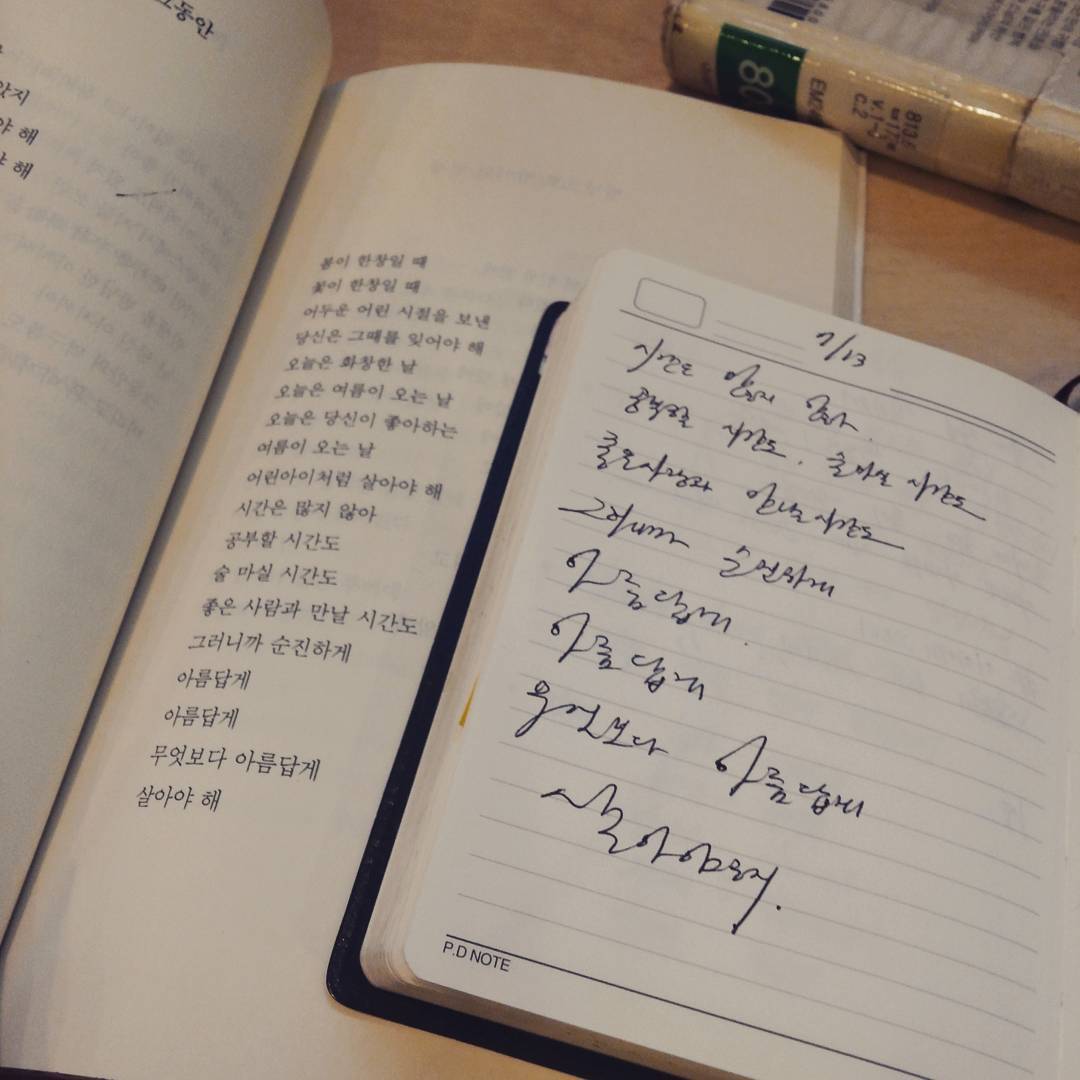 그동안
았지
야 해
야 해
봄이 한창일 때
꽃이 한창일 때
어두운 어린 시절을 보낸
당신은 그때를 잊어야 해
오늘은 화창한 날
오늘은 여름이 오는 날
오늘은 당신이 좋아하는
여름이 오는 날
어린아이처럼 살아야 해
시간은 많지 않아
공부할 시간도
술 마실 시간도
좋은 사람과 만날 시간도
그러니까 순진하게
아름답게
아름답게
무엇보다 아름답게
살아야 해
7/13
시간도 많지 않아.
공부할 시간도, 술 마실 시간도
좋은 사람과 만나는 시간도
그러니까 순진하게
아름답게.
아름답게
무엇보다 아름답게
살아야 하지.
P.D NOTE
80
EM
813.6
V.1
C.2